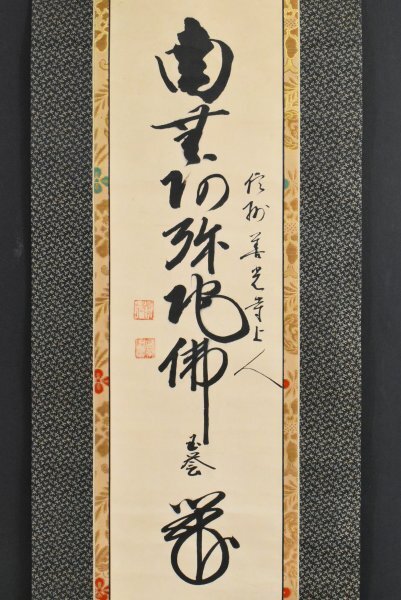 信州善光寺上人
南無阿弥陀佛
玉誉